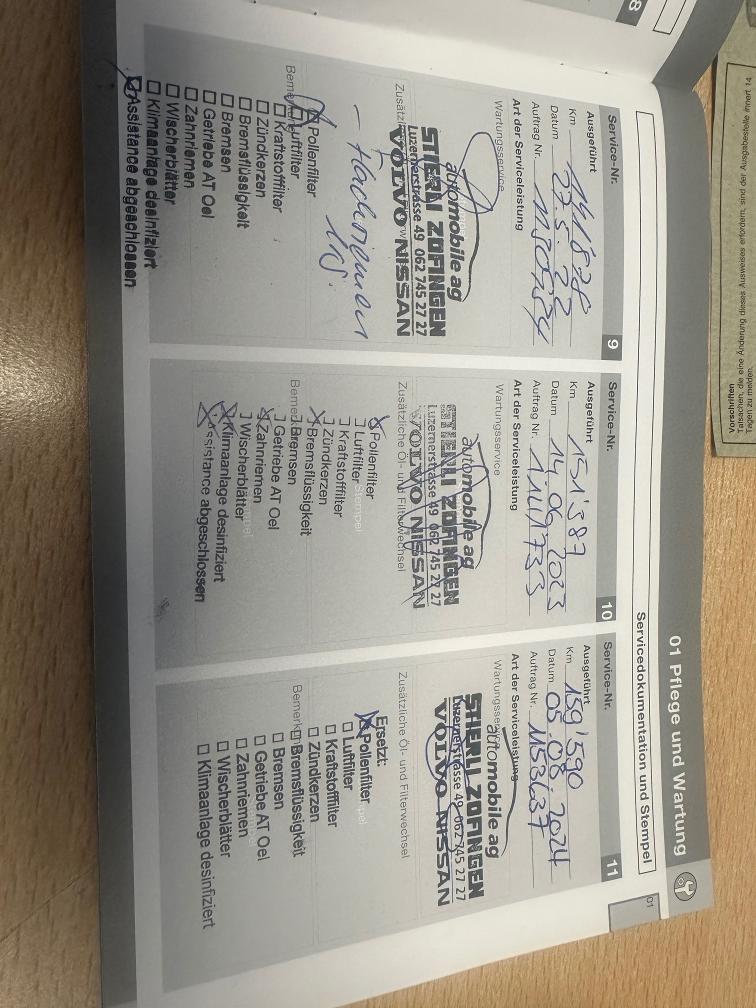 01 Pflege und Wartung
01
Servicedokumentation und Stempel
8
Service-Nr.
9
Ausgeführt
Km 141'878
Datum 27.5.22
Auftrag Nr.
Art der Serviceleistung
Wartungsservice
automobile ag
STIERLI ZOFINGEN
Luzernerstrasse 49 062 745 27 27
VOLVO NISSAN
Pollenfilter
Luftfilter
Kraftstofffilter
Zündkerzen
Bremsflüssigkeit
Bremsen
Getriebe AT Oel
Zahnriemen
Wischerblätter
Klimaanlage desinfiziert
Assistance abgeschlossen
Service-Nr.
10
Ausgeführt
Km 151'387
Datum 14.06.2023
Auftrag Nr.
Art der Serviceleistung
Wartungsservice
automobile ag
STIERLI ZOFINGEN
Luzernerstrasse 49 062 745 27 27
VOLVO NISSAN
Zusätzliche Öl- und Filterwechsel
Pollenfilter
Luftfilter
Kraftstofffilter
Zündkerzen
Bremsflüssigkeit
Bremsen
Getriebe AT Oel
Zahnriemen
Wischerblätter
Klimaanlage desinfiziert
Assistance abgeschlossen
Service-Nr.
11
Ausgeführt
Km 159'590
Datum 05.08.2024
Auftrag Nr. 1153637
Art der Serviceleistung
Wartungsservice
automobile ag
STIERLI ZOFINGEN
Luzernerstrasse 49 062 745 27 27
VOLVO NISSAN
Zusätzliche Öl- und Filterwechsel
Ersetzt:
Pollenfilter
Luftfilter
Kraftstofffilter
Zündkerzen
Bremsflüssigkeit
Bremsen
Getriebe AT Oel
Zahnriemen
Wischerblätter
Klimaanlage desinfiziert
Vorschriften
Tatsachen, die eine Änderung dieses Ausweises erfordern, sind der Ausgabestelle innert 14
Tagen zu melden.